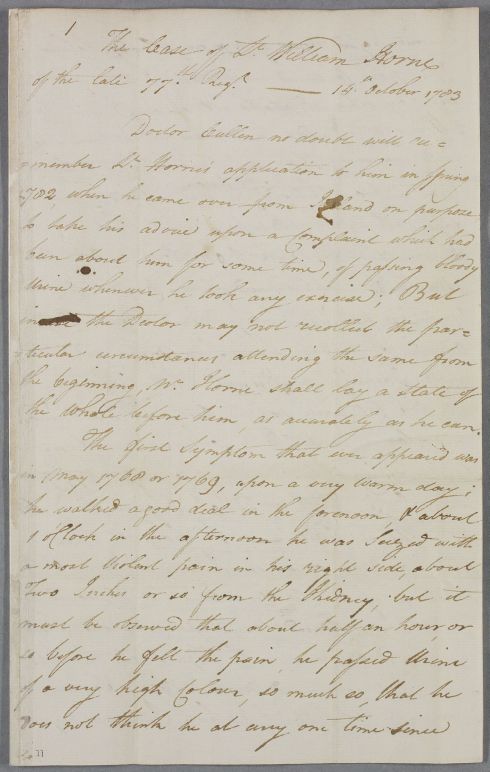 1
The Case of Lt. William Horne
of the late 77th. Regt. — 14th October 1783
Doctor Cullen no doubt will re=
=member Lt. Horne's application to him in Spring
1782, when he came over from Ireland on purpose
to take his advice upon a Complaint which had
been about him for some time, of passing bloody
Urine whenever he took any exercise; But
the Doctor may not recollect the par=
ticular circumstances attending the same from
the beginning, Mr. Horne shall lay a State of
the whole before him, as accurately as he can.
The first Symptom that ever appeared was
in May 1768 or 1769, upon a very warm day;
he walked a good deal in the forenoon, & about
1 oClock in the afternoon he was Seized with
a most Violent pain in his right side, about
Two Inches or so from the Kidney, but it
must be observed that about half an hour, or
so before he felt the pain, he passed Urine
of a very high Colour, so much so, that he
Does not think he at any one time since
77